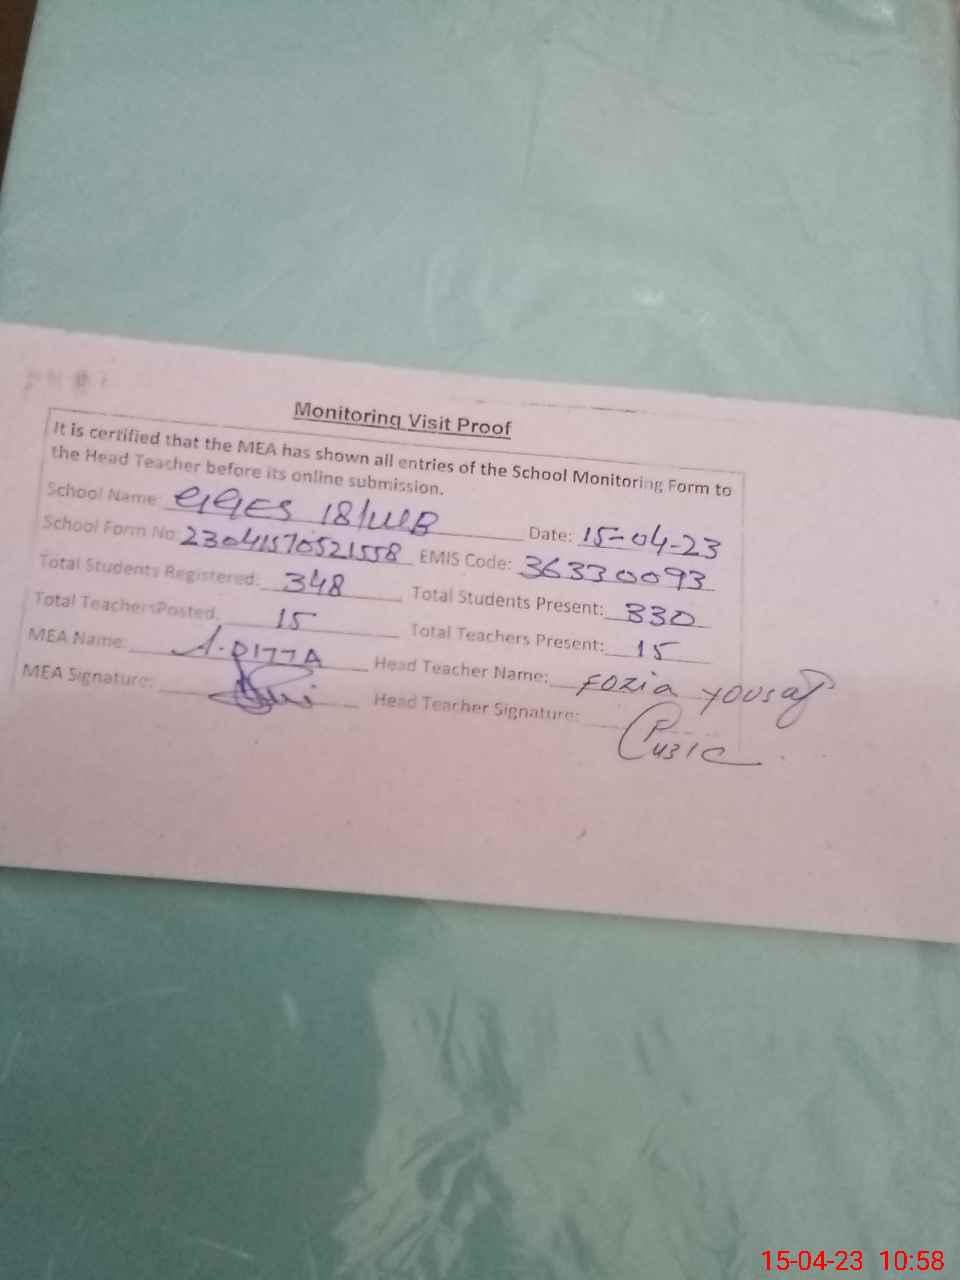 Monitoring Visit Proof
It is certified that the MEA has shown all entries of the School Monitoring Form to
the Head Teacher before its online submission.
School Name: GGES 18/WB Date: 15-04-23
School Form No: 23041570521558 EMIS Code: 36330093
Total Students Registered: 348 Total Students Present: 330
Total TeachersPosted: 15 Total Teachers Present: 15
MEA Name: A.DITTA Head Teacher Name: Fozia Yousaf
MEA Signature: Head Teacher Signature:
15-04-23 10:58